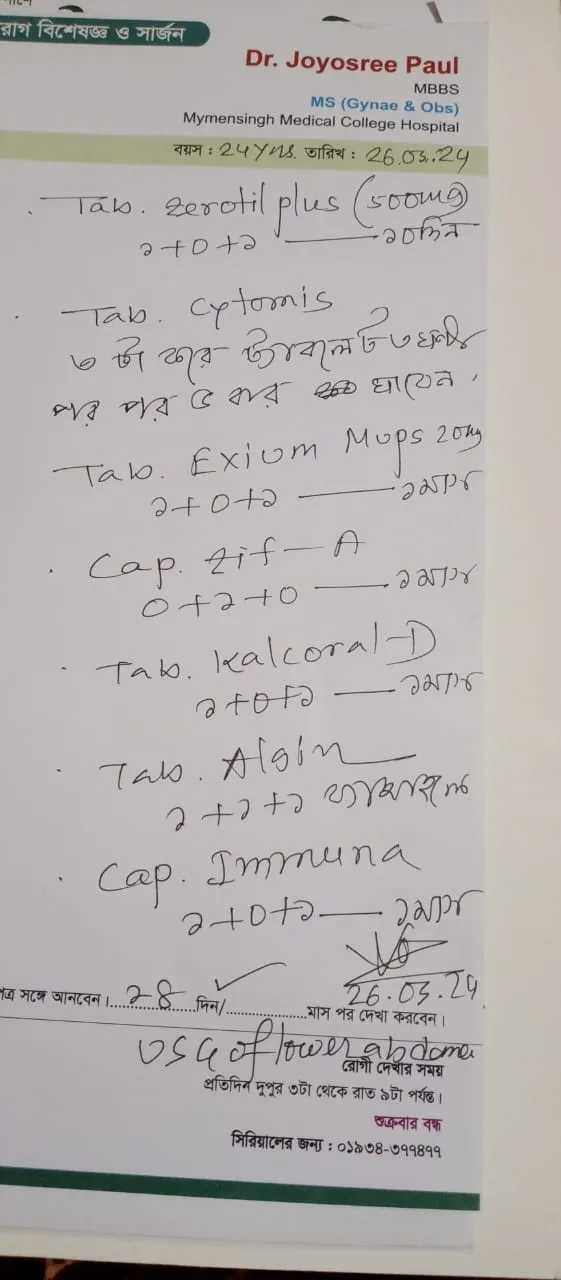 রোগ বিশেষজ্ঞ ও সার্জন
Dr. Joyosree Paul
MBBS
MS (Gynae & Obs)
Mymensingh Medical College Hospital
বয়স : 24 yrs. তারিখ : 26.03.24
Tab. Zerotil plus (500mg)
১+0+১ — ১০দিন
Tab. Cytomis
৩ টা করে ট্যাবলেট ৩ ঘন্টা
পর পর ৩ বার খাবেন।
Tab. Exium Mups 20mg
১+0+১ — ১মাস
Cap. Zif-A
0+১+0 — ১মাস
Tab. Kalcoral-D
১+0+১ — ১মাস
Tab. Algin
১+১+১
Cap. Immuna
১+0+১ — ১মাস
26.03.24
সঙ্গে আনবেন।.....১৪.....দিন/..................মাস পর দেখা করবেন।
USG of lower abdomen
রোগী দেখার সময়
প্রতিদিন দুপুর ৩টা থেকে রাত ৯টা পর্যন্ত।
শুক্রবার বন্ধ
সিরিয়ালের জন্য : ০১৯৩৪-৩৭৭৪৭৭